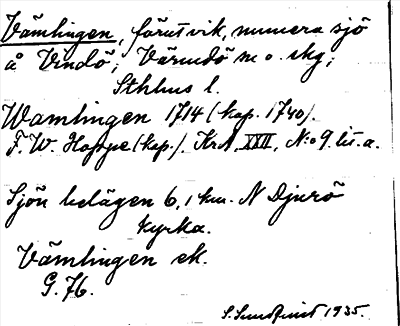 Vämlingen, förut vik, numera sjö
å Vindö; Värmdö sn o. skg;
Sthlms l.
Wamlingen 1714 (kop. 1740).
F. W. Hoppe (kop.). KrA, XXII, No 9 lit. a.
Sjön belägen 6,1 km. N Djurö
kyrka.
Vämlingen ek.
G. 76.
S. Sundquist 1935.